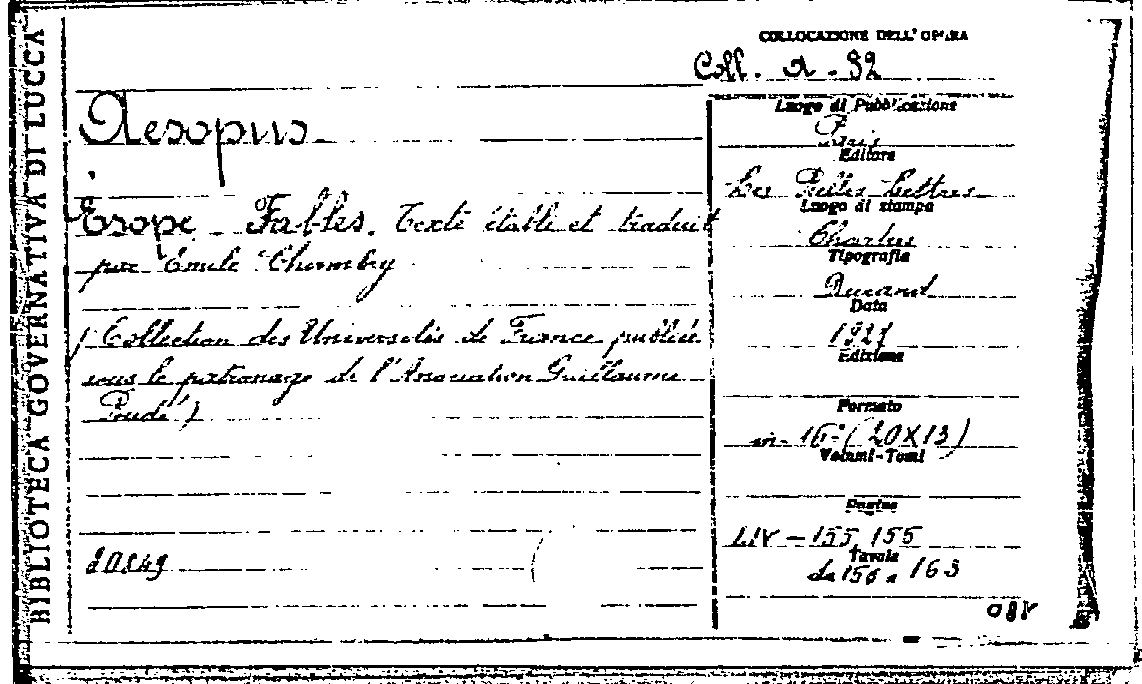 BIBLIOTECA GOVERNATIVA DI LUCCA
COLLOCAZIONE DELL'OPERA
Coll. A - 92
Aesopus
Esope - Fables. Texte établi et traduit
par Émile Chambry
(Collection des Universités de France publiée
sous le patronage de l'Association Guillaume
Budé)
20849
Luogo di Pubblicazione
Paris
Editore
Les Belles Lettres
Luogo di stampa
Chartres
Tipografia
Durand
Data
1927
Edizione
Formato
in-16° (20X13)
Volumi-Tomi
Pagine
LIV - 155, 155
Tavole
da 156 a 163